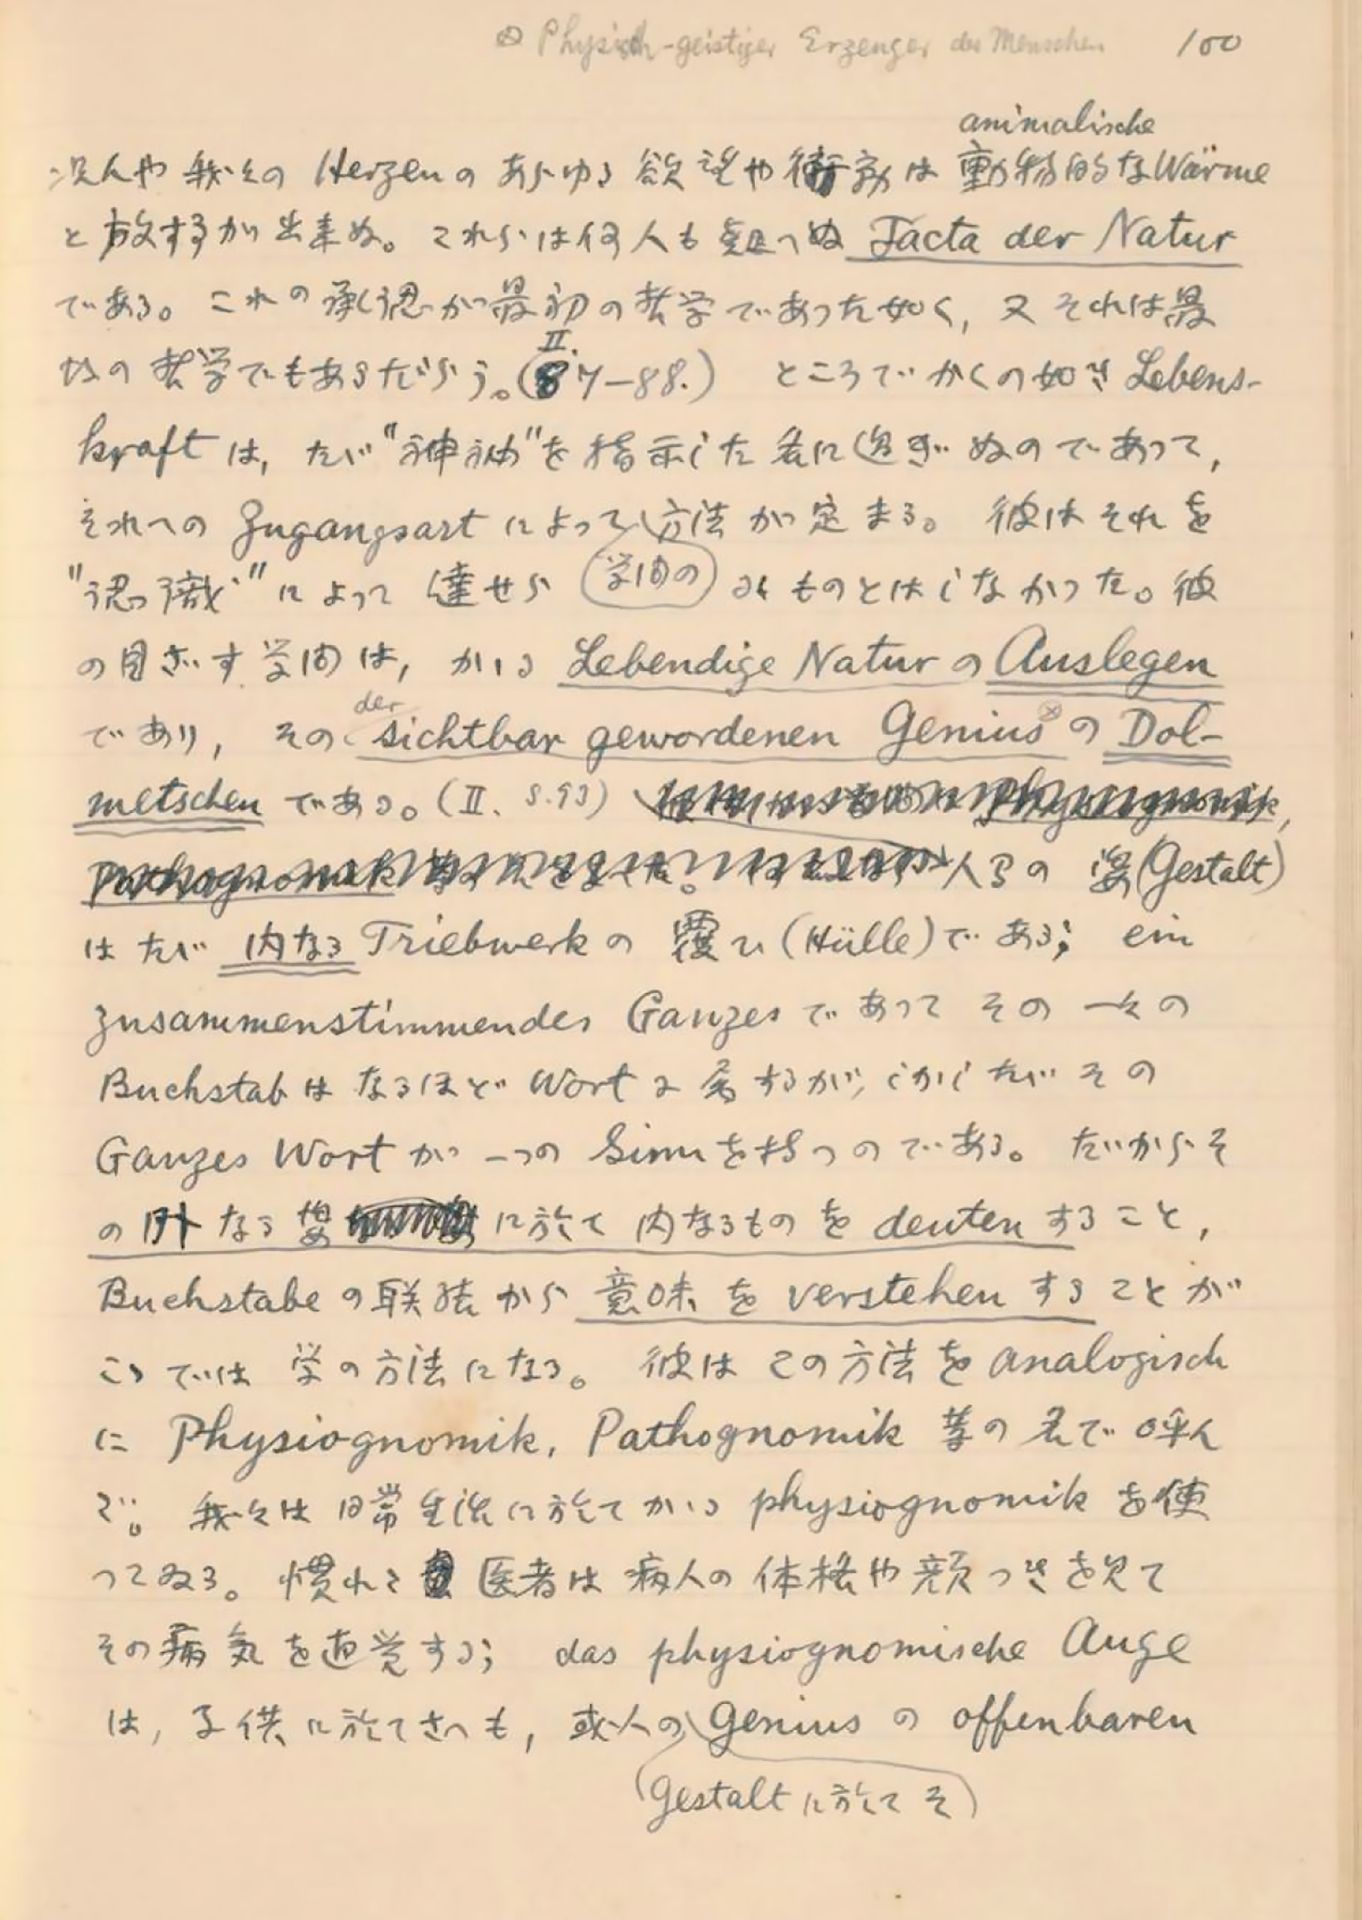 ⊗ Physisch-geistiger Erzeuger des Menschen 100
animalische
況んや我々の Herzen のあらゆる欲望や衝動は動物的な Wärme
と放するが出来ぬ。これらは何人も疑へぬ Facta der Natur
である。これの承認が最初の哲学であった如く, 又それは最
後の哲学でもあるだらう。(II. 87—88.) ところでかくの如き Lebens-
kraft は, たゞ "神秘" を指示した名に過ぎぬのであって,
それへの Zugangsart によって方法が定まる。 彼はそれを
"認識" によって達せられ 学問の みものとはしなかった。彼
の目ざす学問は, かゝる Lebendige Natur の Auslegen
であり, その der sichtbar gewordenen Genius ⊗ の Dol-
metschen である。(II. S.93)
人間の姿(Gestalt)
はたゞ 内なる Triebwerk の覆ひ (Hülle) である; ein
zusammenstimmendes Ganzes であって その一々の
Buchstab はなるほど Wort に属するが, しかしたゞその
Ganzes Wort が一つの Sinn を持つのである。 だからそ
の外なる姿に於て内なるものを deuten すること,
Buchstabe の联結から意味を verstehen することが
こゝでは学の方法になる。 彼はこの方法を analogisch
に Physiognomik, Pathognomik 等の名で呼ん
だ。 我々は日常生活に於てかゝる physiognomik を使
ってゐる。慣れた医者は病人の体格や顔つきを見て
その病気を直覚する; das physiognomische Auge
は, 子供に於てさへも, 或人の Genius の offenbaren
Gestalt に於てそ